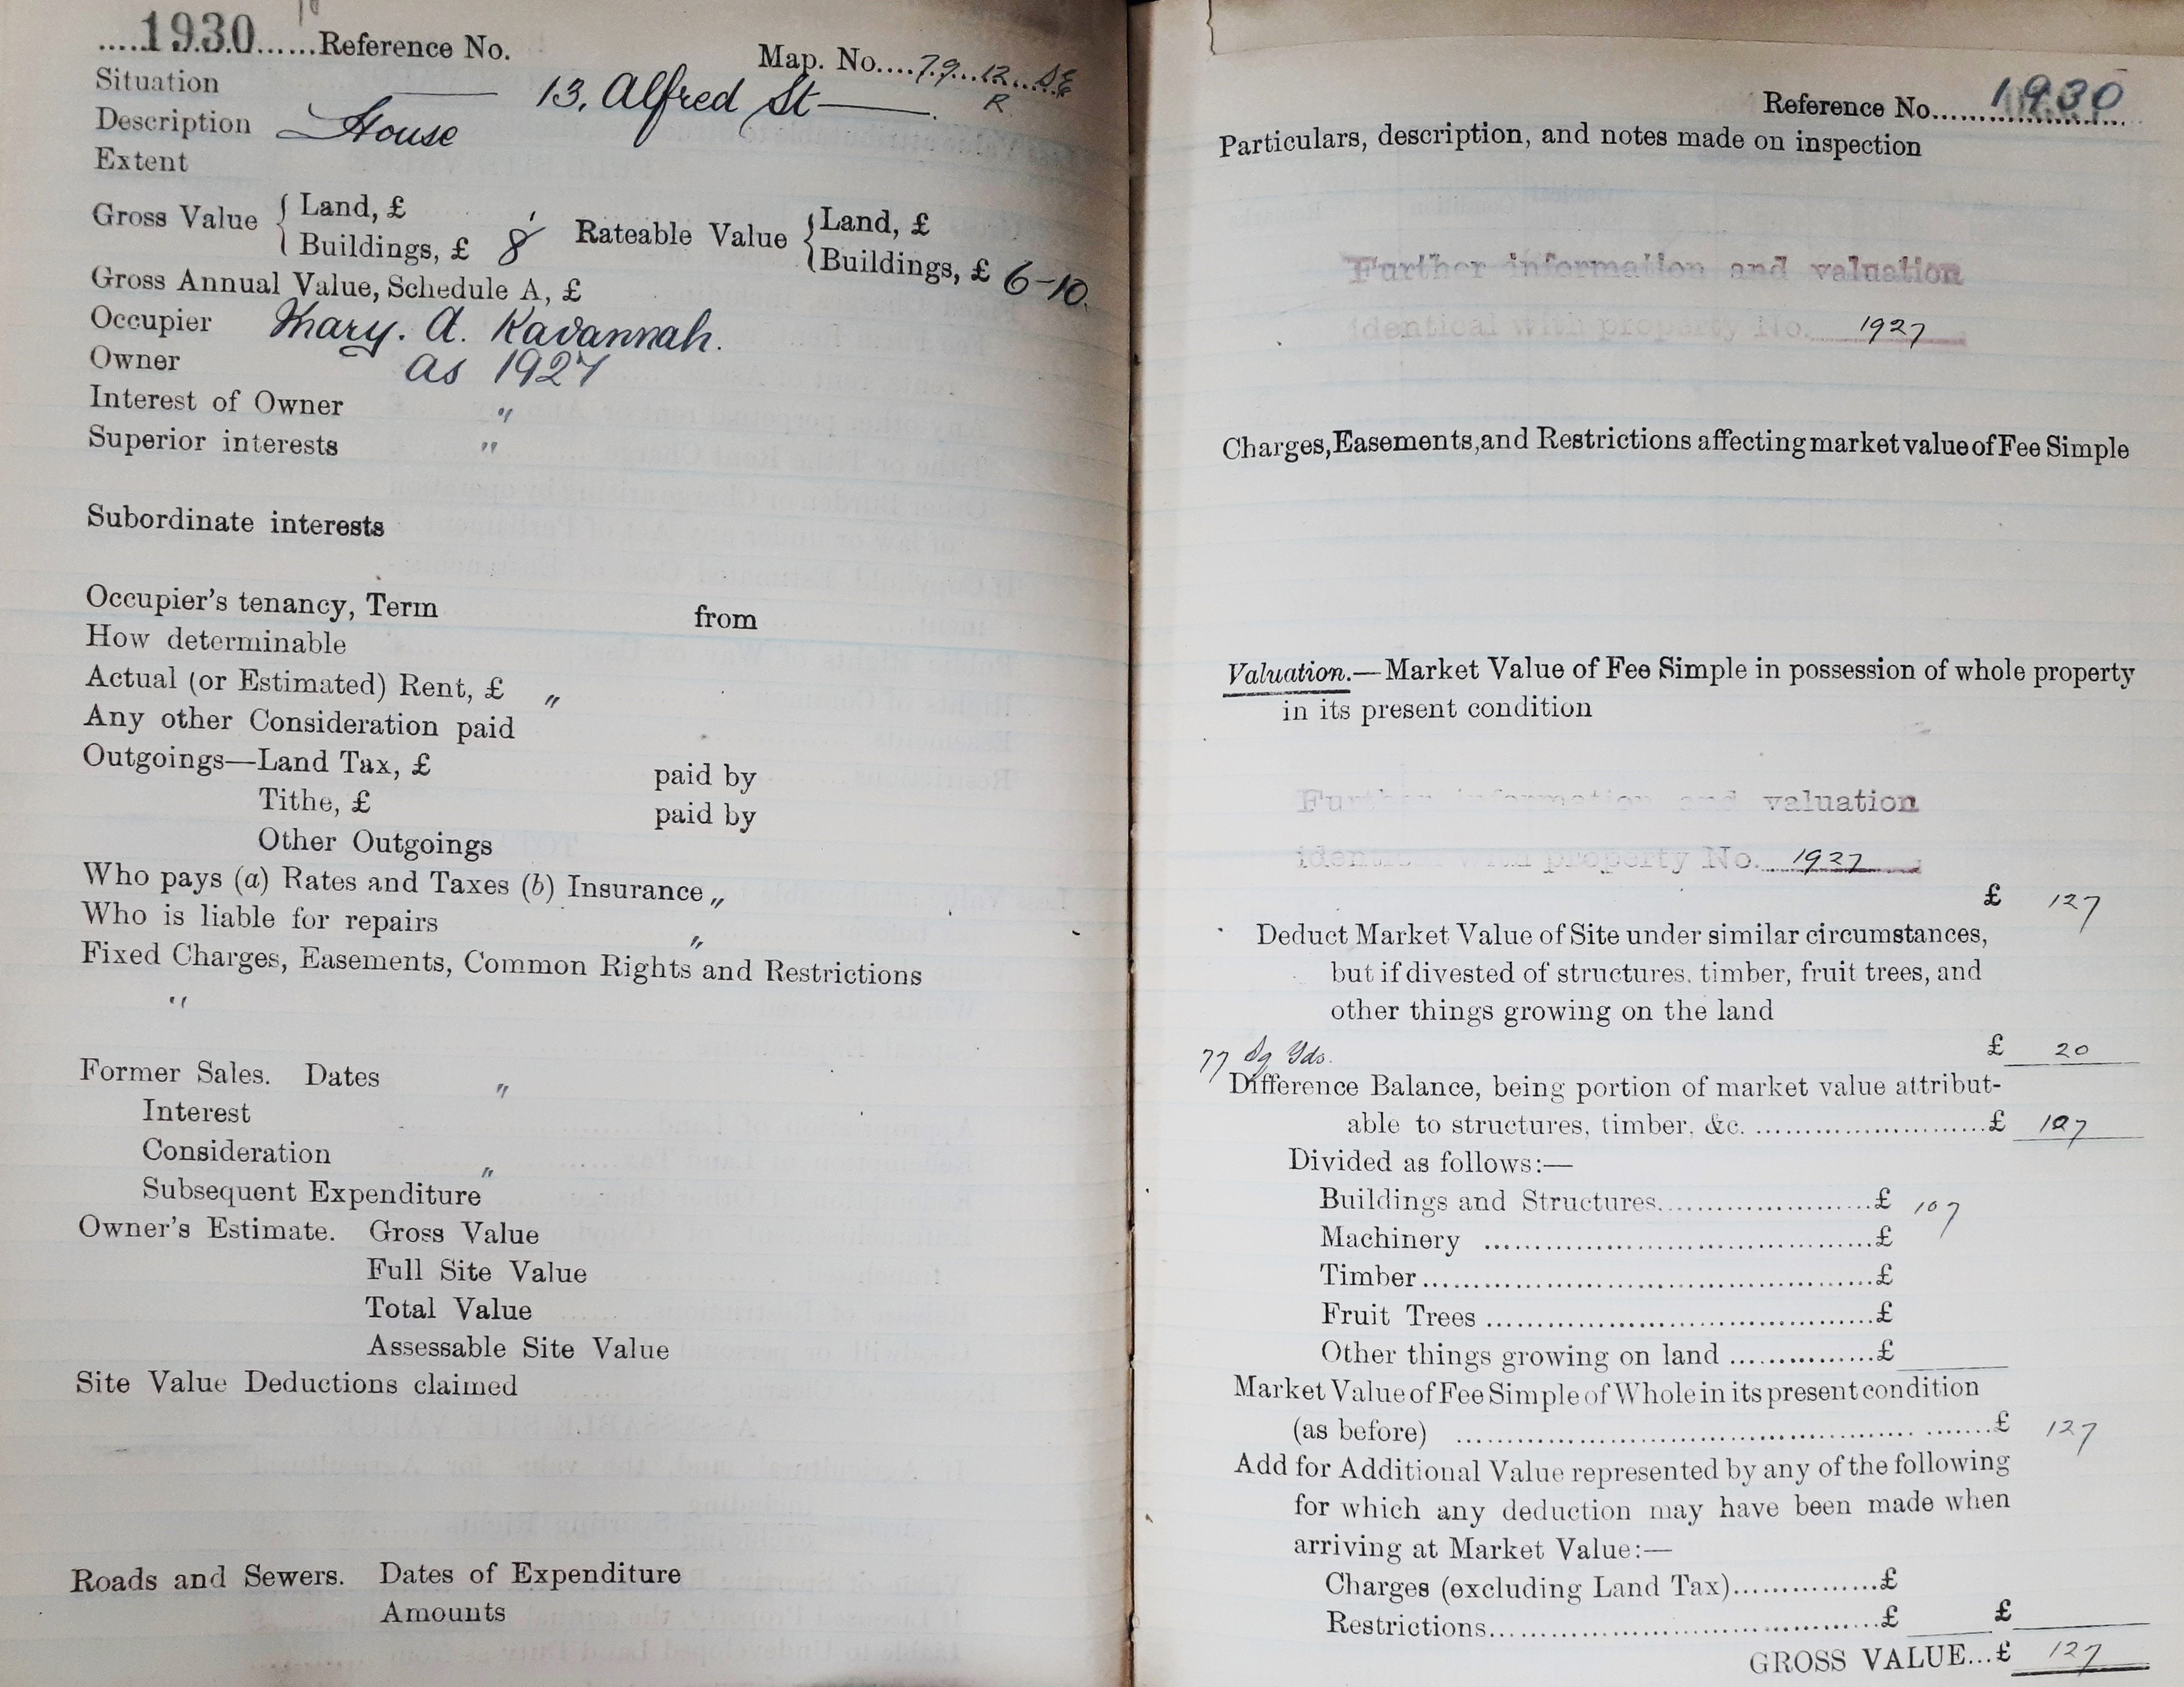 .....1930......Reference No. Map. No....79...12...SE
R.
Situation 13, Alfred St
Description House
Extent
Gross Value { Land, £
Buildings, £ 8 Rateable Value { Land, £
Buildings, £ 6-10.
Gross Annual Value, Schedule A, £
Occupier Mary. A. Kavannah.
Owner as 1927
Interest of Owner "
Superior interests "
Subordinate interests
Occupier's tenancy, Term from
How determinable
Actual (or Estimated) Rent, £ "
Any other Consideration paid
Outgoings—Land Tax, £ paid by
Tithe, £ paid by
Other Outgoings
Who pays (a) Rates and Taxes (b) Insurance "
Who is liable for repairs "
Fixed Charges, Easements, Common Rights and Restrictions
"
Former Sales. Dates "
Interest
Consideration "
Subsequent Expenditure
Owner's Estimate. Gross Value
Full Site Value
Total Value
Assessable Site Value
Site Value Deductions claimed
Roads and Sewers. Dates of Expenditure
Amounts
Reference No. 1930
Particulars, description, and notes made on inspection
Further information and valuation
identical with property No. 1927
Charges, Easements, and Restrictions affecting market value of Fee Simple
Valuation.—Market Value of Fee Simple in possession of whole property
in its present condition
Further information and valuation
identical with property No. 1927
£ 127
Deduct Market Value of Site under similar circumstances,
but if divested of structures, timber, fruit trees, and
other things growing on the land
77 Sq Yds. £ 20
Difference Balance, being portion of market value attribut-
able to structures, timber, &c. ........................£ 107
Divided as follows:—
Buildings and Structures......................£ 107
Machinery ........................................£
Timber..............................................£
Fruit Trees .......................................£
Other things growing on land ...............£
Market Value of Fee Simple of Whole in its present condition
(as before) ........................................................£ 127
Add for Additional Value represented by any of the following
for which any deduction may have been made when
arriving at Market Value:—
Charges (excluding Land Tax)...............£
Restrictions........................................£ £
GROSS VALUE...£ 127